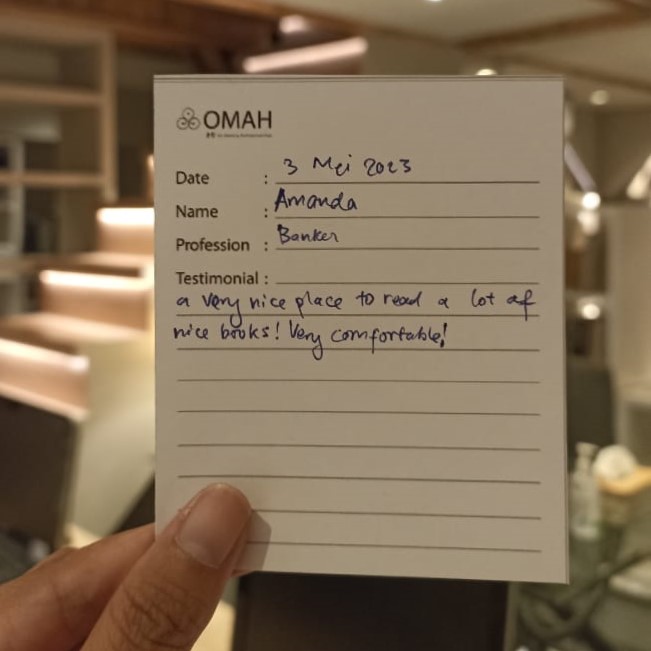 OMAH
Date : 3 Mei 2023
Name : Amanda
Profession : Banker
Testimonial :
a very nice place to read a lot of
nice books! Very comfortable!